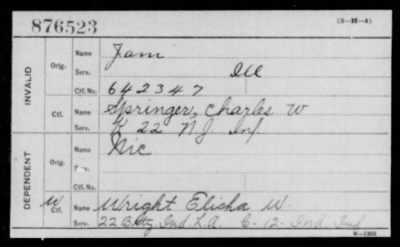 876523
(3-1121-4)
INVALID
Orig. Name Jam
Serv. Ill
Ctf. No. 642347
Ctf. Name Springer, Charles W
Serv. K 22 NJ Inf
DEPENDENT
Orig. Name Nic
Serv.
Ctf. No.
W Ctf. Name Wright Elisha W.
Serv. 22 Btty Ind L.A. C-12-Ind Inf